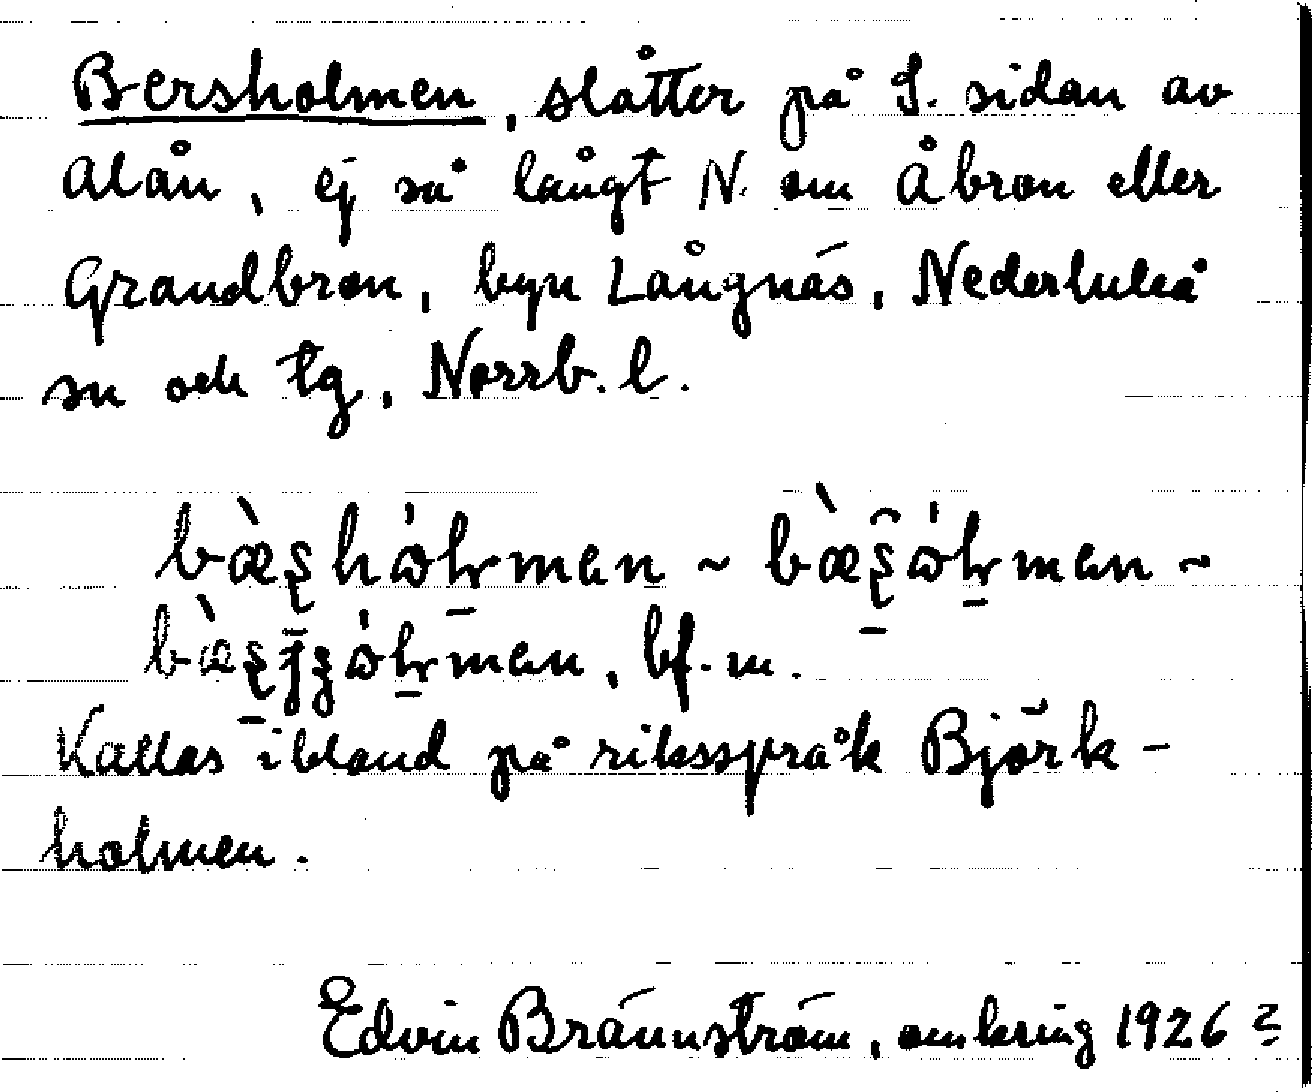 Bersholmen, slåtter på S. sidan av
Alån, ej så långt N. om Åbron eller
Grandbron, byn Långnäs, Nederluleå
sn och tg, Norrb. l.
bf. m.
Kallas ibland på riksspråk Björk-
holmen.
Edvin Brännström, omkring 1926?